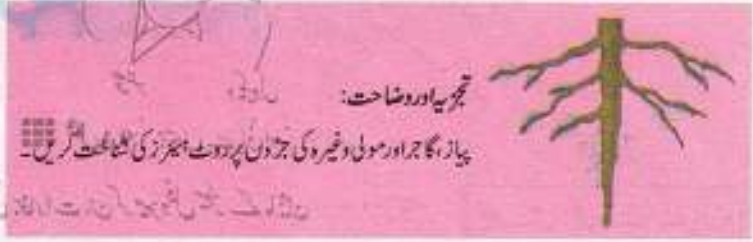 تجزیہ اور وضاحت:
پیاز، گاجر اور مولی وغیرہ کی جڑوں پر روٹ ہیئرز کی شناخت کریں۔